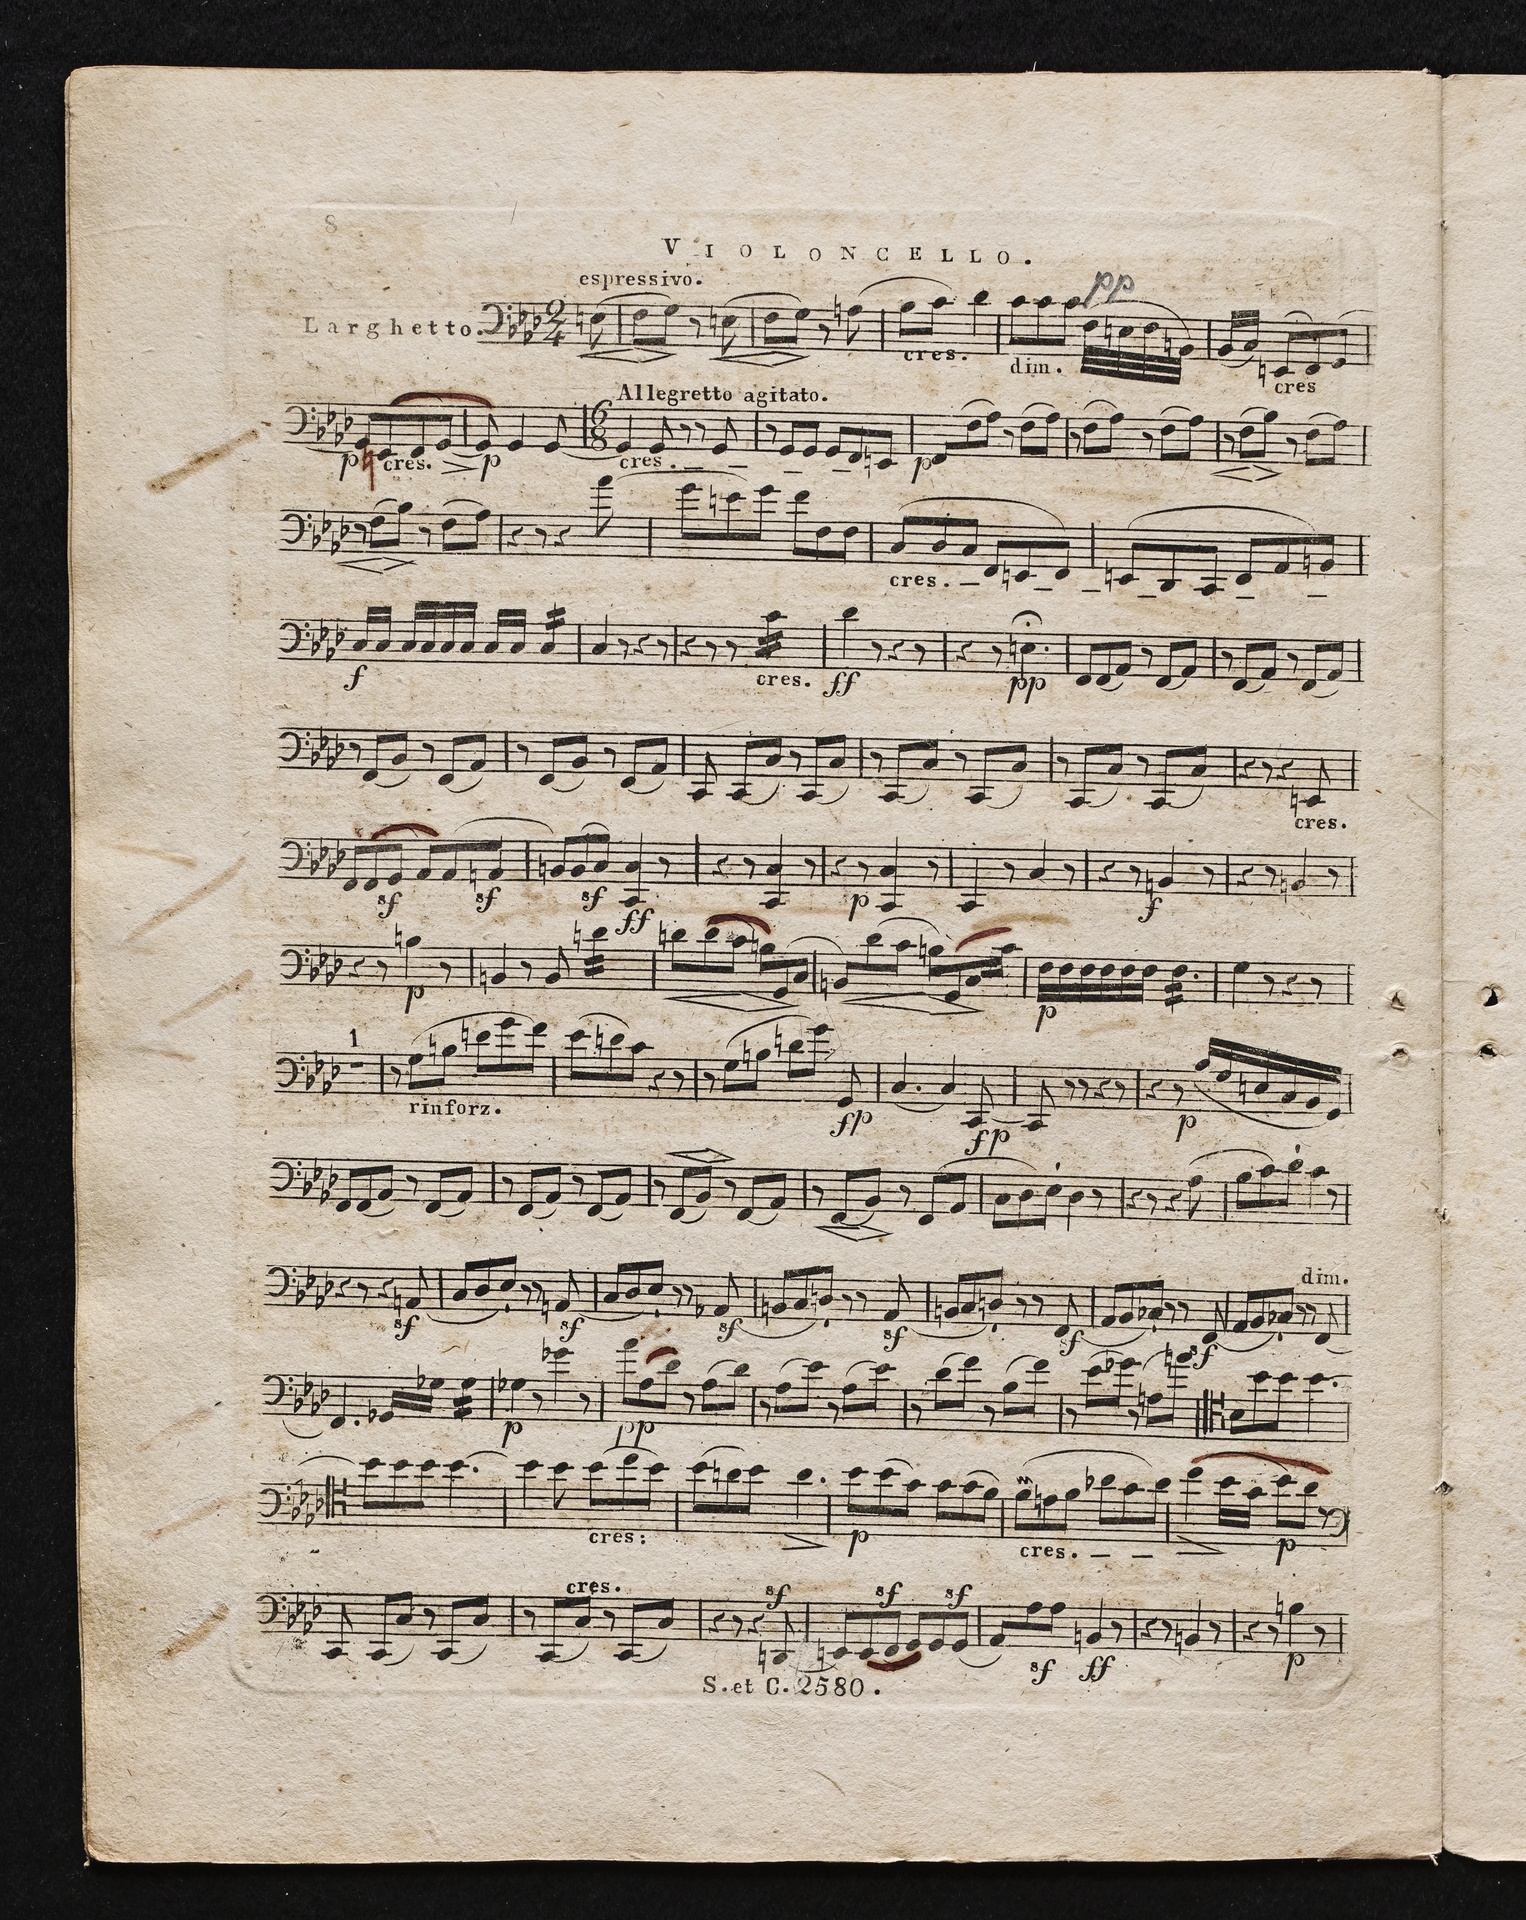 8
VIOLONCELLO.
espressivo.
Larghetto.
pp
cres. dim. cres
Allegretto agitato.
p cres. p cres. p
cres.
f cres. ff pp
cres.
sf sf sf ff p f
p p
1
rinforz. fp fp p
dim.
sf sf sf sf sf sf
p pp
cres: p cres. p
cres. sf sf sf
sf ff p
S. et C. 2580.